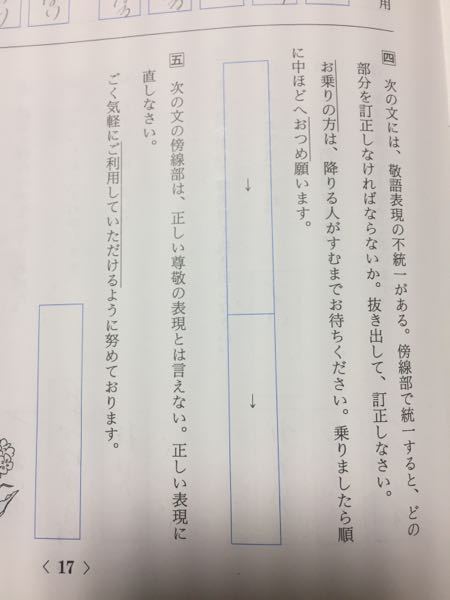 用
四 次の文には、敬語表現の不統一がある。傍線部で統一すると、どの
部分を訂正しなければならないか。抜き出して、訂正しなさい。
お乗りの方は、降りる人がすむまでお待ちください。乗りましたら順
に中ほどへおつめ願います。
↓
↓
五 次の文の傍線部は、正しい尊敬の表現とは言えない。正しい表現に
直しなさい。
ごく気軽にご利用していただけるように努めております。
〈 17 〉